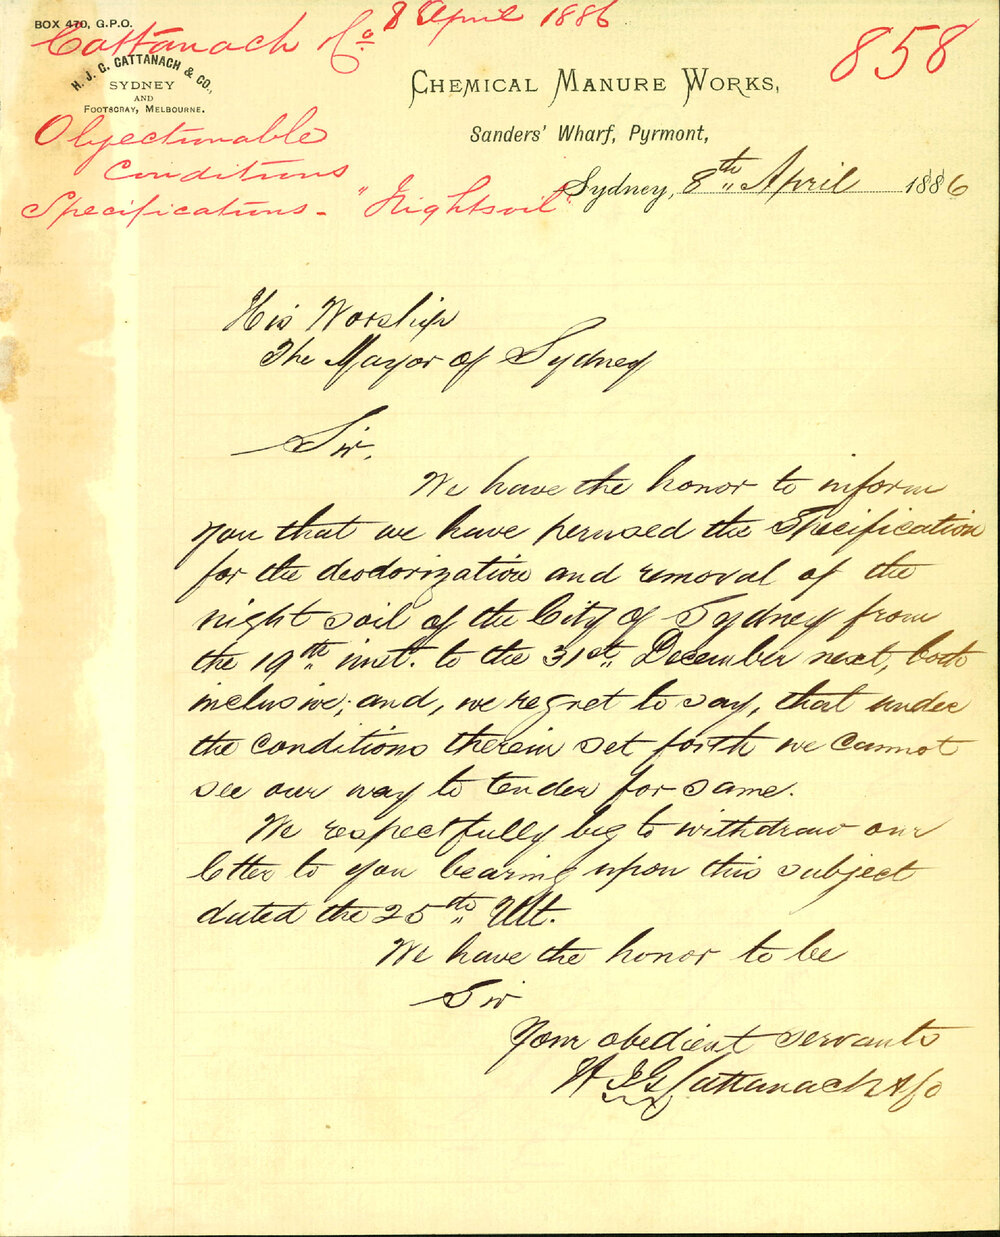 BOX 470, G.P.O.
Cattanach & Co 8 April 1886
858
H. J. G. CATTANACH & CO.,
SYDNEY
AND
FOOTSCRAY, MELBOURNE.
CHEMICAL MANURE WORKS,
Sanders' Wharf, Pyrmont,
Objectionable
Conditions
Specifications - "Nightsoil"
Sydney, 8th April 1886
His Worship
The Mayor of Sydney
Sir,
We have the honor to inform
you that we have perused the Specification
for the deodorization and removal of the
night soil of the City of Sydney from
the 19th inst. to the 31st December next, both
inclusive; and, we regret to say, that under
the conditions therein set forth we cannot
see our way to tender for same.
We respectfully beg to withdraw our
letter to you bearing upon this subject
dated the 25th Ult.
We have the honor to be
Sir
Your obedient servants
H J G Cattanach & Co